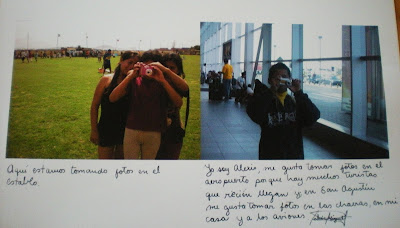 Aqui estamos tomando fotos en el
establo.
Yo soy Alexis, me gusta tomar fotos en el
aeropuerto porque hay muchos turistas
que recién llegan y en San Agustín
me gusta tomar fotos en las chacras, en mi
casa y a los aviones